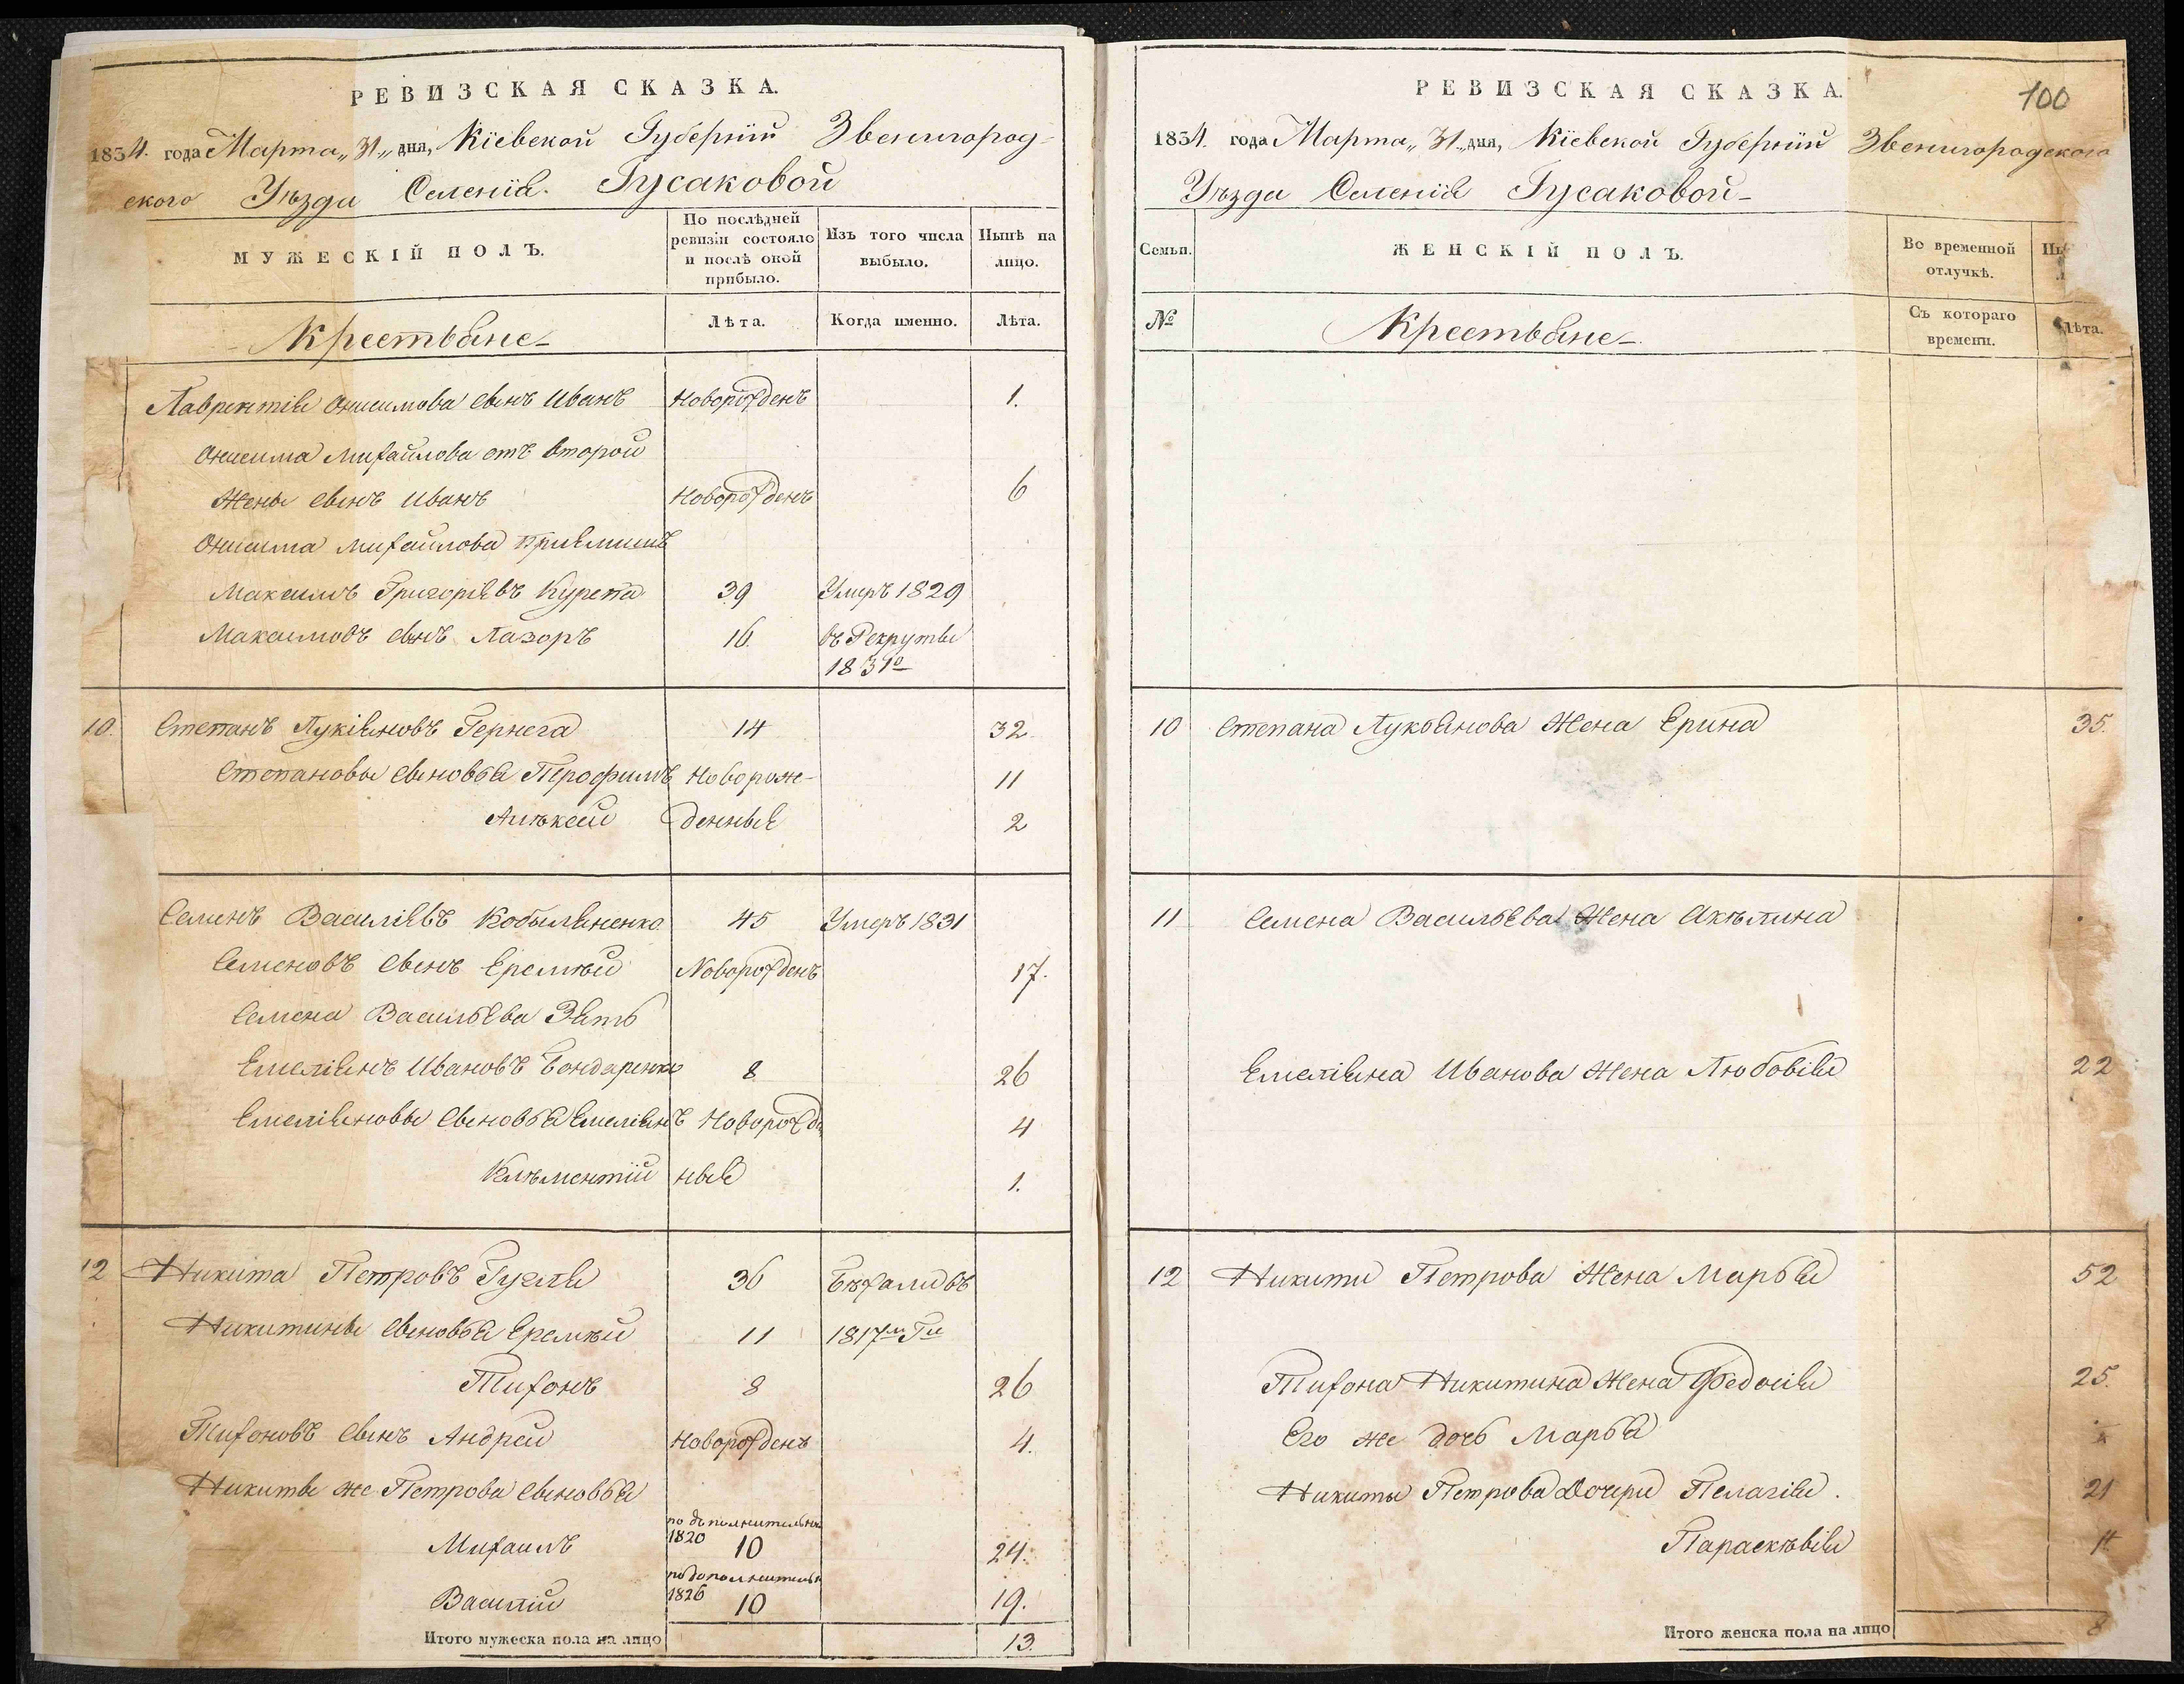 РЕВИЗСКАЯ СКАЗКА.
1834. года Марта „31„ дня, Кіевской Губерніи Звенигород-
ского Уѣзда Селенія. Гусаковой
МУЖЕСКІЙ ПОЛЪ.
По послѣдней ревизіи состояло и послѣ оной прибыло.
Изъ того числа выбыло.
Нынѣ на лицо.
Крестьяне
Лѣта.
Когда именно.
Лѣта.
Лаврентія Онисимова сынъ Иванъ Новорожденъ 1.
Онисима Михайлова отъ второй
Жены сынъ Иванъ Новорожденъ 6
Онисима Михайлова Пріемишъ
Максимъ Григоріевъ Курепа 39 Умеръ 1829
Максимовъ сынъ Лазоръ 16. въ Рекруты
1831º
10. Степанъ Лукіяновъ Гернега 14 32
Степановы сыновья Трофимъ Новорож- 11
Алѣксѣй денные 2
Семенъ Василіевъ Кобыляненко 45 Умеръ 1831
Семеновъ сынъ Еремѣй Новорожденъ 17.
Семена Васильева Зять
Емеліянъ Ивановъ Бондаренко 8 26
Емеліяновы сыновья Емеліянъ Новорожде 4
Клѣментій ные 1.
12 Никита Петровъ Гугля 36 Бѣжалъ въ
Никитины сыновья Еремѣй 11 1817м Гм
Тихонъ 8 26
Тихоновъ сынъ Андрей Новорожденъ 4.
Никиты же Петрова сыновья
по дополнительной
Михаилъ 1820 10 24.
по дополнительн
Василій 1826 10 19.
Итого мужеска пола на лицо 13.
РЕВИЗСКАЯ СКАЗКА.
100
1834. года Марта „31„ дня, Кіевской Губерніи Звенигородского
Уѣзда Селенія Гусаковой
Семьи.
ЖЕНСКІЙ ПОЛЪ.
Во временной отлучкѣ.
№
Крестьяне
Съ котораго времени.
Лѣта.
10 Степана Лукьянова Жена Ерина 35.
11 Семена Васильева Жена Акѣлина
Емеліяна Иванова Жена Любовія 22
12 Никити Петрова Жена Марья 52
Тихона Никитина Жена Федосія 25.
Его же дочь Марья
Никиты Петрова Дочери Пелагія. 21
Параскѣвія
Итого женска пола на лицо